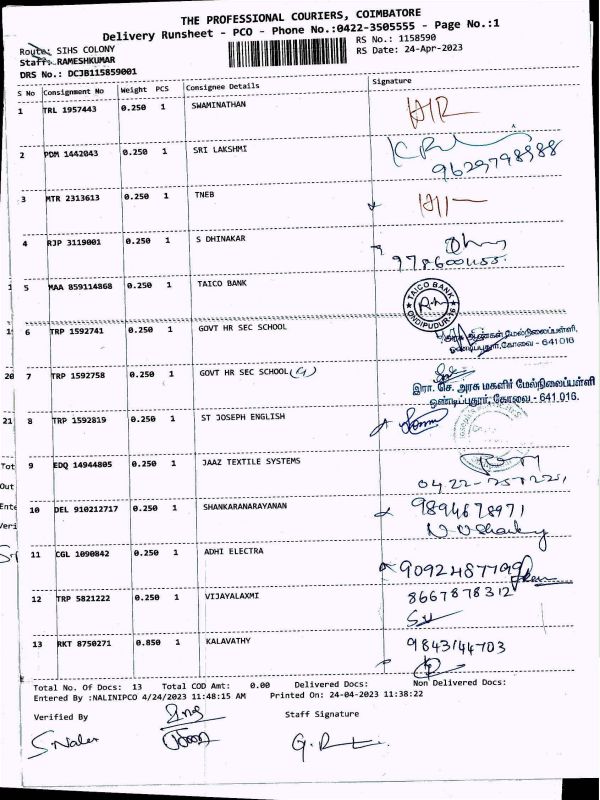 THE PROFESSIONAL COURIERS, COIMBATORE
Delivery Runsheet - PCO - Phone No.:0422-3505555 - Page No.:1
Route: SIHS COLONY
RS No.: 1158590
Staff: RAMESHKUMAR
RS Date: 24-Apr-2023
DRS No.: DCJB115859001
S No Consignment No Weight PCS Consignee Details Signature
1 TRL 1957443 0.250 1 SWAMINATHAN
2 PDM 1442043 0.250 1 SRI LAKSHMI
9629798988
3 MTR 2313613 0.250 1 TNEB
4 RJP 3119001 0.250 1 S DHINAKAR
9786001155.
5 MAA 859114868 0.250 1 TAICO BANK
TAICO BANK
ONDIPUDUR-16
6 TRP 1592741 0.250 1 GOVT HR SEC SCHOOL
மேல்நிலைப்பள்ளி,
ஒண்டிப்புதூர்,கோவை - 641 016
7 TRP 1592758 0.250 1 GOVT HR SEC SCHOOL (G)
இரா. செ. அரசு மகளிர் மேல்நிலைப்பள்ளி
ஒண்டிப்புதூர், கோவை - 641 016.
8 TRP 1592819 0.250 1 ST JOSEPH ENGLISH
9 EDQ 14944805 0.250 1 JAAZ TEXTILE SYSTEMS
10 DEL 910212717 0.250 1 SHANKARANARAYANAN
9894678971
11 CGL 1090842 0.250 1 ADHI ELECTRA
9092487799
12 TRP 5821222 0.250 1 VIJAYALAXMI
8667878312
13 RKT 8750271 0.850 1 KALAVATHY
9843144703
Total No. Of Docs: 13 Total COD Amt: 0.00 Delivered Docs: Non Delivered Docs:
Entered By :NALINIPCO 4/24/2023 11:48:15 AM Printed On: 24-04-2023 11:38:22
Verified By Staff Signature